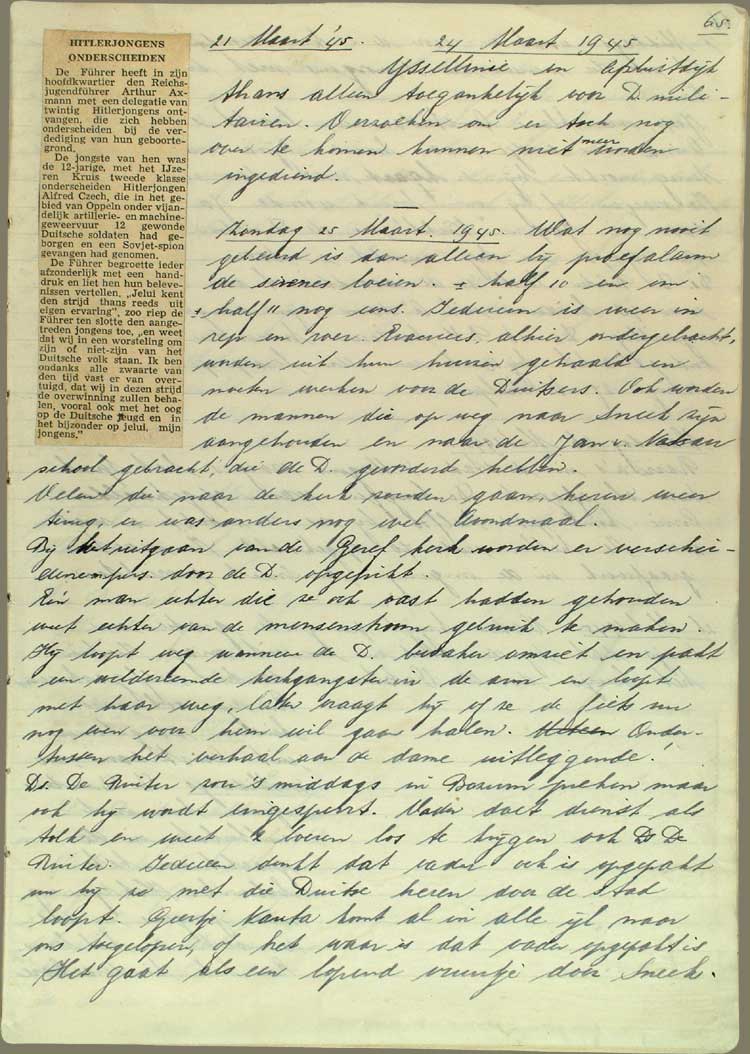 65.
HITLERJONGENS
ONDERSCHEIDEN
De Führer heeft in zijn
hoofdkwartier den Reichs-
jugendführer Arthur Ax-
mann met een delegatie van
twintig Hitlerjongens ont-
vangen, die zich hebben
onderscheiden bij de ver-
dediging van hun geboorte-
grond.
De jongste van hen was
de 12-jarige, met het IJze-
ren Kruis tweede klasse
onderscheiden Hitlerjongen
Alfred Czech, die in het ge-
bied van Oppeln onder vij-
andelijk artillerie- en machine-
geweervuur 12 gewonde
Duitsche soldaten had ge-
borgen en een Sovjet-spion
gevangen had genomen.
De Führer begroette ieder
afzonderlijk met een hand-
druk en liet hen hun beleve-
nissen vertellen. „Jelui kent
den strijd thans reeds uit
eigen ervaring", zoo riep de
Führer ten slotte den aange-
treden jongens toe, „en weet
dat wij in een worsteling om
zijn of niet-zijn van het
Duitsche volk staan. Ik ben
ondanks alle zwaarte van
den tijd vast er van over-
tuigd, dat wij in dezen strijd
de overwinning zullen beha-
len, vooral ook met het oog
op de Duitsche jeugd en in
het bijzonder op jelui, mijn
jongens."
21 Maart '45. 24 Maart 1945
Yssellinie en Afsluitdijk
thans alleen toegankelijk voor D. mili-
tairen. Verzoeken om er toch nog
over te komen kunnen niet meer worden
ingediend.
Zondag 25 Maart. 1945. Wat nog nooit
gebeurd is dan alleen bij proefalarm
de sirenes loeien. ± half 10 en om
± half 11 nog eens. Iedereen is weer in
rep en roer. Evacuees, alhier ondergebracht,
worden uit hun huizen gehaald en
moeten werken voor de Duitsers. Ook worden
de mannen die op weg naar Sneek zijn
aangehouden en naar de Jan v. Nassau
school gebracht, die de D. gevorderd hebben.
Velen die naar de kerk zouden gaan, keren weer
terug, er was anders nog wel Avondmaal.
Bij het uitgaan van de Geref kerk worden er verschei-
dene pers. door de D. opgepikt.
Eén man echter die ze ook vast hadden gehouden
weet echter van de mensenstroom gebruik te maken.
Hij loopt weg wanneer de D. bewaker omziet en pakt
een wildvreemde kerkgangster in de arm en loopt
met haar weg, later vraagt hij of ze de fiets nu
nog even voor hem wil gaan halen. Onder-
tussen het verhaal aan de dame uitleggende!
Ds. De Ruiter zou 's middags in Bozum preken maar
ook hij wordt ingesperrt. Vader doet dienst als
tolk en weet 2 boeren los te krijgen ook Ds De
Ruiter. Iedereen denkt dat vader ook is opgepakt
nu hij zo met die Duitse heren door de stad
loopt. Geertje Kanta komt al in alle ijl naar
ons toegelopen, of het waar is dat vader opgepakt is
Het gaat als een lopend vuurtje door Sneek.